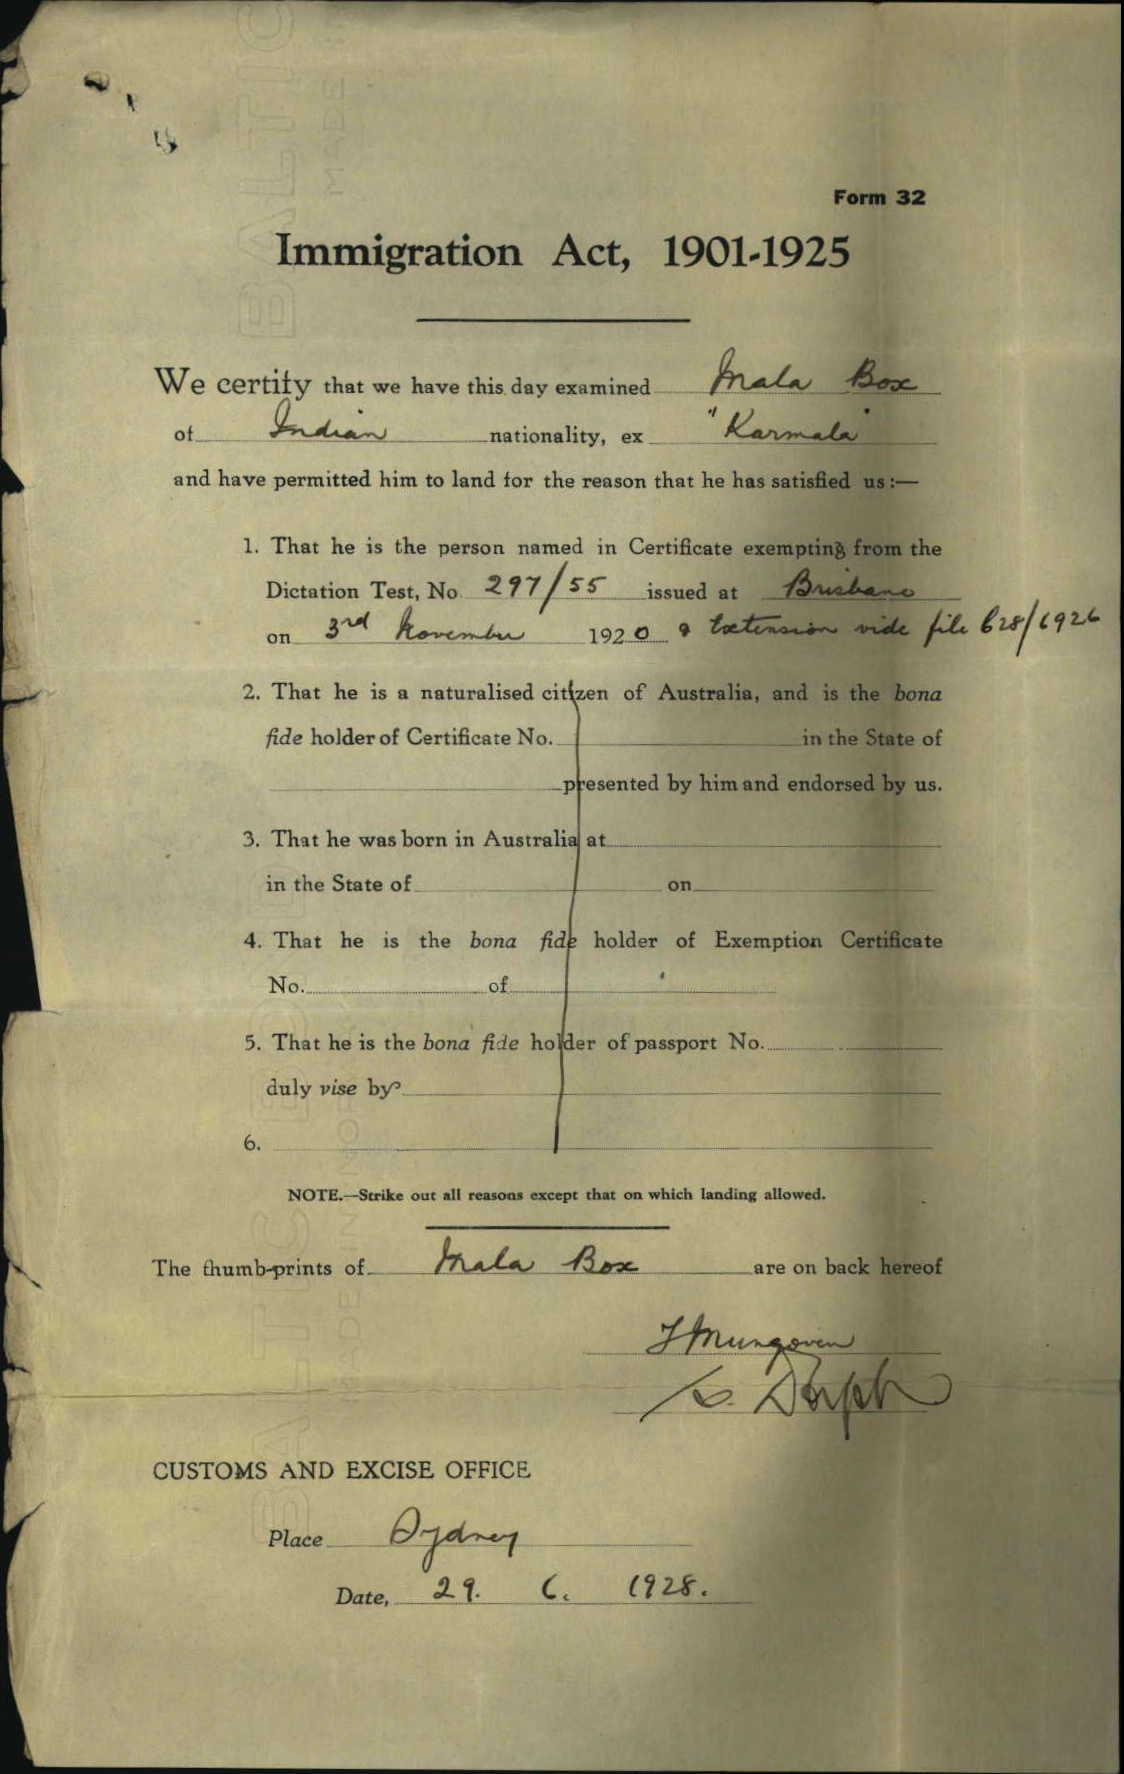 Form 32
Immigration Act, 1901-1925
We certify that we have this day examined Mala Box
of Indian nationality, ex "Karmala"
and have permitted him to land for the reason that he has satisfied us:—
1. That he is the person named in Certificate exempting from the
Dictation Test, No. 297/55 issued at Brisbane
on 3rd November 1920 & Extension vide file 628/1926
2. That he is a naturalised citizen of Australia, and is the bona
fide holder of Certificate No. in the State of
presented by him and endorsed by us.
3. That he was born in Australia at
in the State of on
4. That he is the bona fide holder of Exemption Certificate
No. of
5. That he is the bona fide holder of passport No.
duly vise by
6.
NOTE.—Strike out all reasons except that on which landing allowed.
The thumb-prints of Mala Box are on back hereof
J Mungoven
CUSTOMS AND EXCISE OFFICE
Place Sydney
Date, 29. 6. 1928.